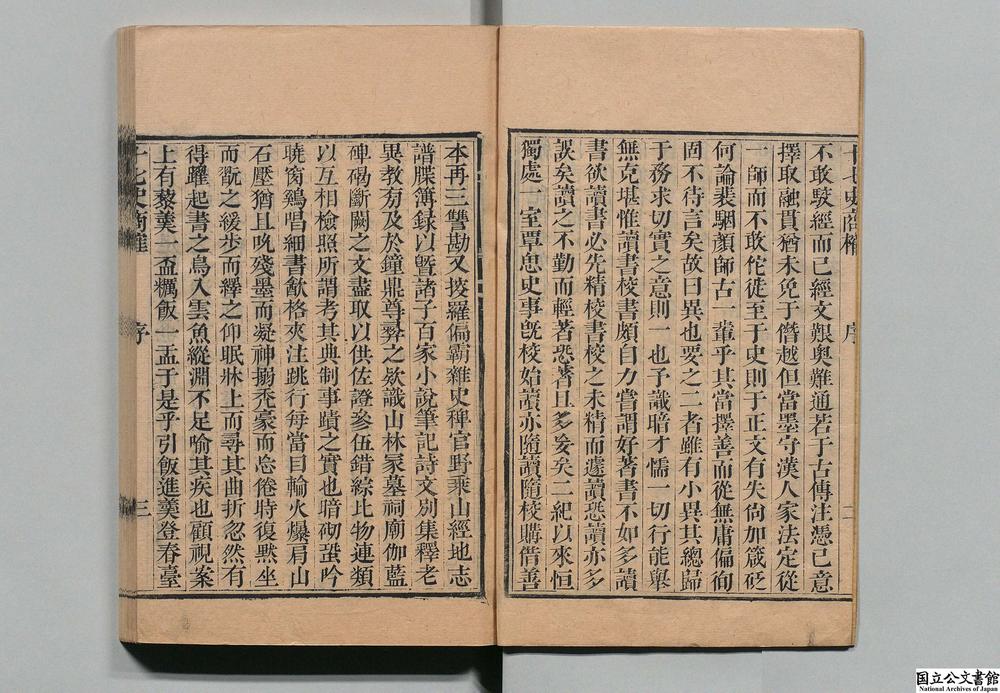 十七史商榷 序 二
不敢駮經而已經文艱奧難通若于古傳注憑己意
擇取融貫猶未免于僭越但當墨守漢人家法定從
一師而不敢佗徒至于史則于正文有失尙加箴砭
何論裴駰顏師古一輩乎其當擇善而從無庸偏徇
固不待言矣故曰異也要之二者雖有小異其總歸
于務求切實之意則一也予識暗才懦一切行能舉
無克堪惟讀書校書頗自力嘗謂好著書不如多讀
書欲讀書必先精校書校之未精而遽讀恐讀亦多
誤矣讀之不勤而輕著恐著且多妄矣二紀以來恒
獨處一室覃思史事旣校始讀亦隨讀隨校購借善
本再三讐勘又搜羅偏霸雜史稗官野乘山經地志
譜牒簿錄以曁諸子百家小說筆記詩文別集釋老
異敎旁及於鐘鼎尊彝之欵識山林冢墓祠廟伽藍
碑碣斷闕之文盡取以供佐證參伍錯綜比物連類
以互相檢照所謂考其典制事蹟之實也暗砌蛩吟
曉窗鷄唱細書㱃格夾注跳行每當目輪火爆肩山
石壓猶且吮殘墨而凝神搦禿豪而忘倦時復默坐
而翫之緩步而繹之仰眠牀上而尋其曲折忽然有
得躍起書之鳥入雲魚縱淵不足喻其疾也顧視案
上有藜羹一盃糲飯一盂于是乎引飯進羹登春臺
十七史商榷 序 三
国立公文書館
National Archives of Japan